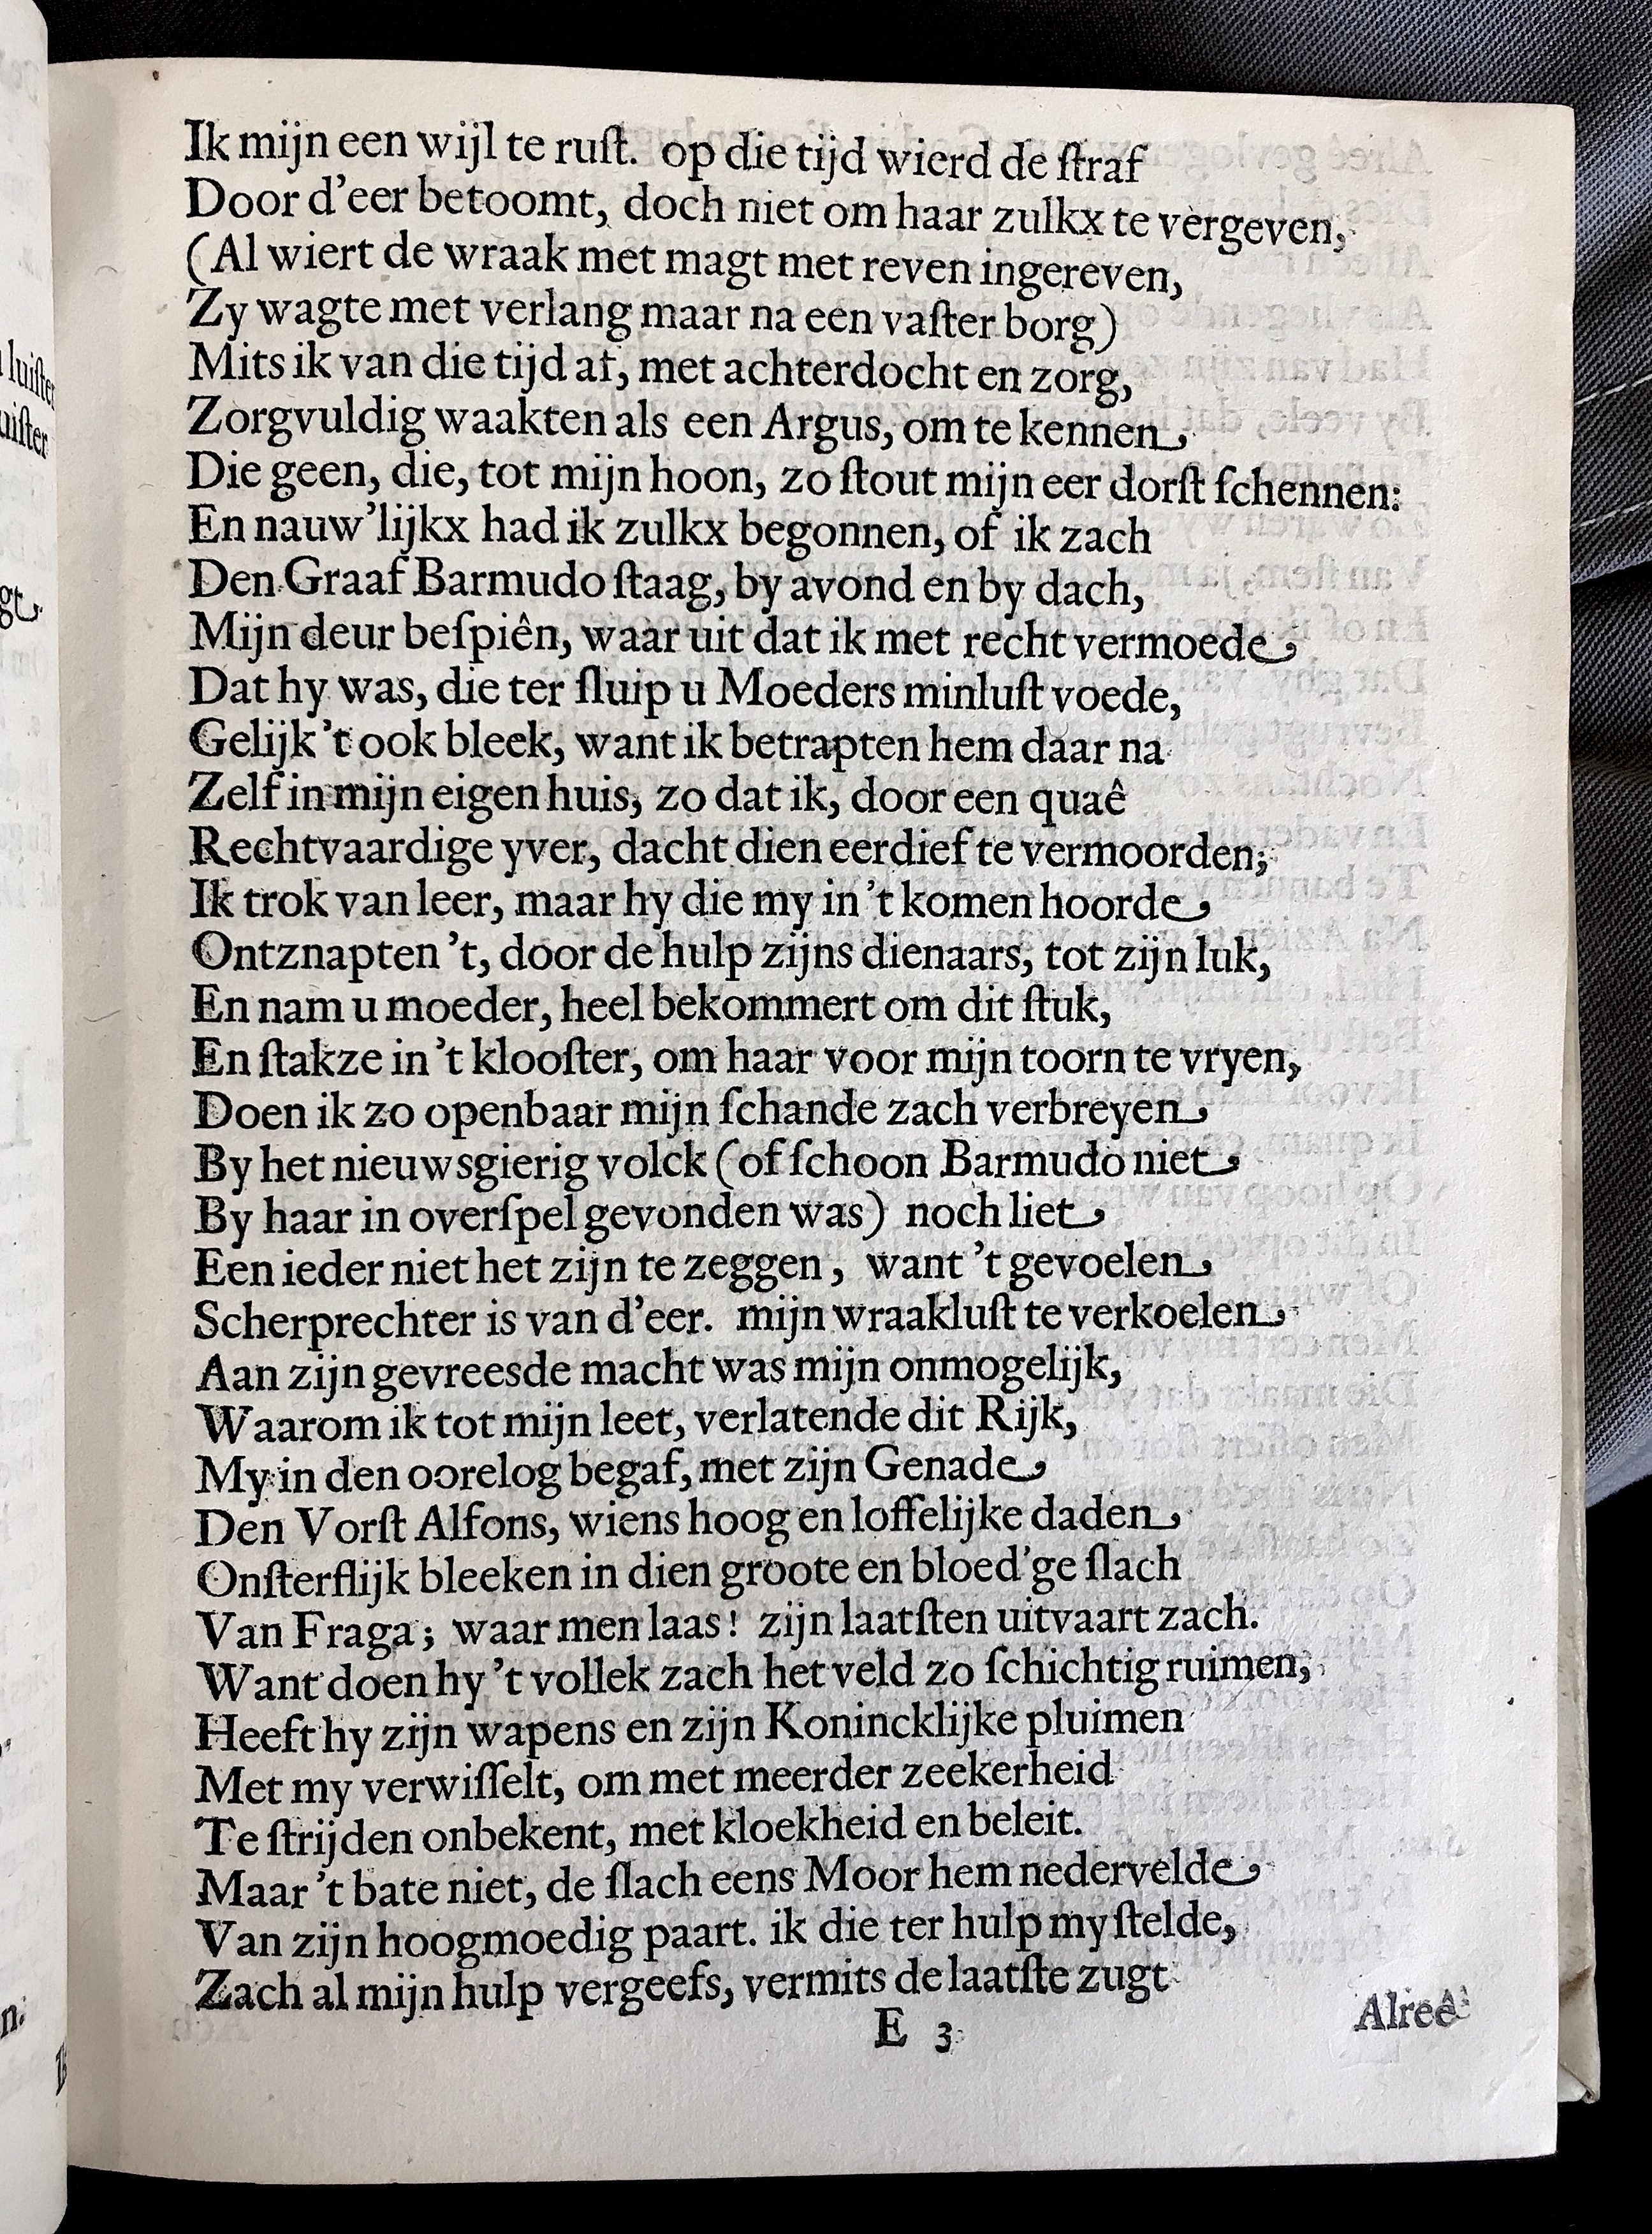 Ik mijn een wijl te ruſt. op die tijd wierd de ſtraf
Door d'eer betoomt, doch niet om haar zulkx te vergeven,
(Al wiert de wraak met magt met reven ingereven,
Zy wagte met verlang maar na een vaſter borg)
Mits ik van die tijd af, met achterdocht en zorg,
Zorgvuldig waakten als een Argus, om te kennen
Die geen, die, tot mijn hoon, zo ſtout mijn eer dorſt ſchennen:
En nauw'lijkx had ik zulkx begonnen, of ik zach
Den Graaf Barmudo ſtaag, by avond en by dach,
Mijn deur beſpiên, waar uit dat ik met recht vermoede
Dat hy was, die ter ſluip u Moeders minluſt voede,
Gelijk 't ook bleek, want ik betrapten hem daar na
Zelf in mijn eigen huis, zo dat ik, door een quaê
Rechtvaardige yver, dacht dien eerdief te vermoorden;
Ik trok van leer, maar hy die my in 't komen hoorde
Ontznapten 't, door de hulp zijns dienaars, tot zijn luk,
En nam u moeder, heel bekommert om dit ſtuk,
En ſtakze in 't klooſter, om haar voor mijn toorn te vryen,
Doen ik zo openbaar mijn ſchande zach verbreyen
By het nieuwsgierig volck (of ſchoon Barmudo niet
By haar in overſpel gevonden was) noch liet
Een ieder niet het zijn te zeggen, want 't gevoelen
Scherprechter is van d'eer. mijn wraakluſt te verkoelen
Aan zijn gevreesde macht was mijn onmogelijk,
Waarom ik tot mijn leet, verlatende dit Rijk,
My in den oorelog begaf, met zijn Genade
Den Vorſt Alfons, wiens hoog en loffelijke daden
Onſterflijk bleeken in dien groote en bloed'ge ſlach
Van Fraga; waar men laas! zijn laatſten uitvaart zach.
Want doen hy 't vollek zach het veld zo ſchichtig ruimen,
Heeft hy zijn wapens en zijn Konincklijke pluimen
Met my verwiſſelt, om met meerder zeekerheid
Te ſtrijden onbekent, met kloekheid en beleit.
Maar 't bate niet, de ſlach eens Moor hem nedervelde
Van zijn hoogmoedig paart. ik die ter hulp my ſtelde,
Zach al mijn hulp vergeefs, vermits de laatſte zugt
E 3
Alreê